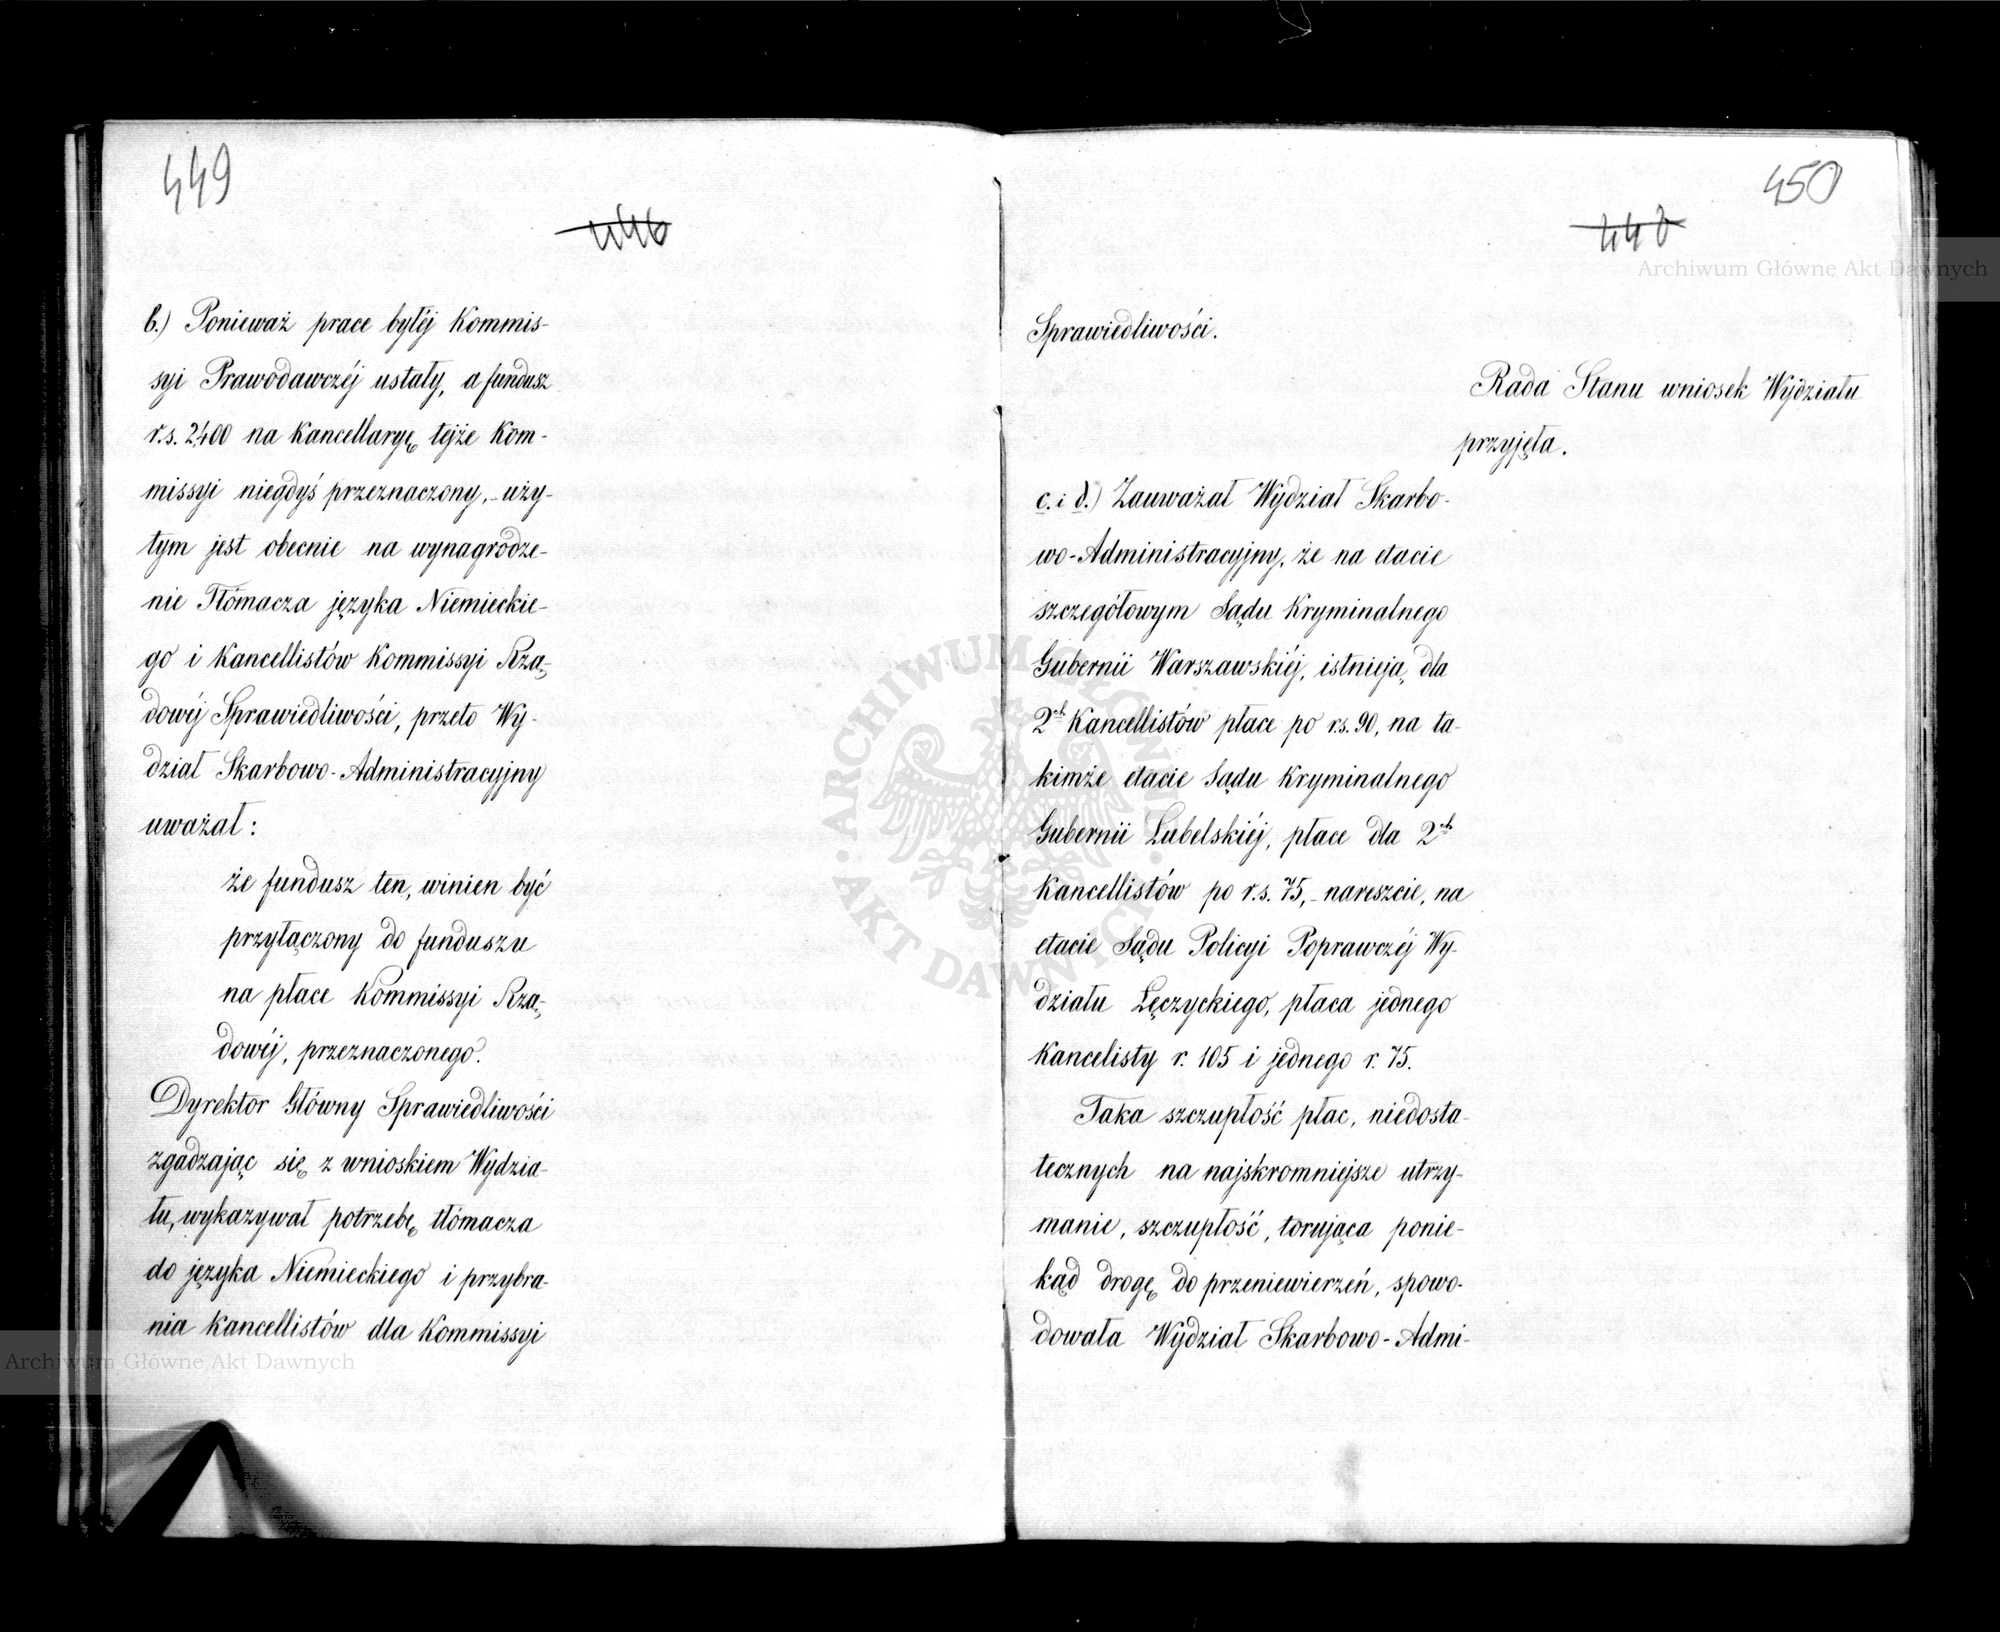 449
446
b.) Ponieważ prace byłéj Kommis-
syi Prawodawczéj ustały, a fundusz
r.s. 2400 na Kancellaryę tejże Kom-
missyi niegdyś przeznaczony, uży-
tym jest obecnie na wynagrodze-
nie Tłómacza języka Niemieckie-
go i Kancellistów Kommissyi Rzą-
dowéj Sprawiedliwości, przeto Wy-
dział Skarbowo-Administracyjny
uważał:
że fundusz ten, winien być
przyłączony do funduszu
na płace Kommissyi Rzą-
dowéj, przeznaczonego.
Dyrektor Główny Sprawiedliwości
zgadzając się z wnioskiem Wydzia-
łu, wykazywał potrzebę tłómacza
do języka Niemieckiego i przybra-
nia Kancellistów dla Kommissyi
450
Sprawiedliwości.
Rada Stanu wniosek Wydziału
przyjęła.
c. i d.) Zauważał Wydział Skarbo-
wo-Administracyjny, że na etacie
szczegółowym Sądu Kryminalnego
Gubernii Warszawskiéj, istnieją dla
2ch Kancellistów płace po r.s. 90, na ta-
kimże etacie Sądu Kryminalnego
Gubernii Lubelskiéj, płace dla 2ch
Kancellistów po r.s. 75, nareszcie, na
etacie Sądu Policyi Poprawczéj Wy-
działu Łęczyckiego, płaca jednego
Kancelisty r. 105 i jednego r. 75.
Taka szczupłość płac, niedosta-
tecznych na najskromniejsze utrzy-
manie, szczupłość, torująca ponie-
kąd drogę do przeniewierzeń, spowo-
dowała Wydział Skarbowo-Admi-
Archiwum Główne Akt Dawnych
Archiwum Główne Akt Dawnych
ARCHIWUM GŁÓWNE AKT DAWNYCH